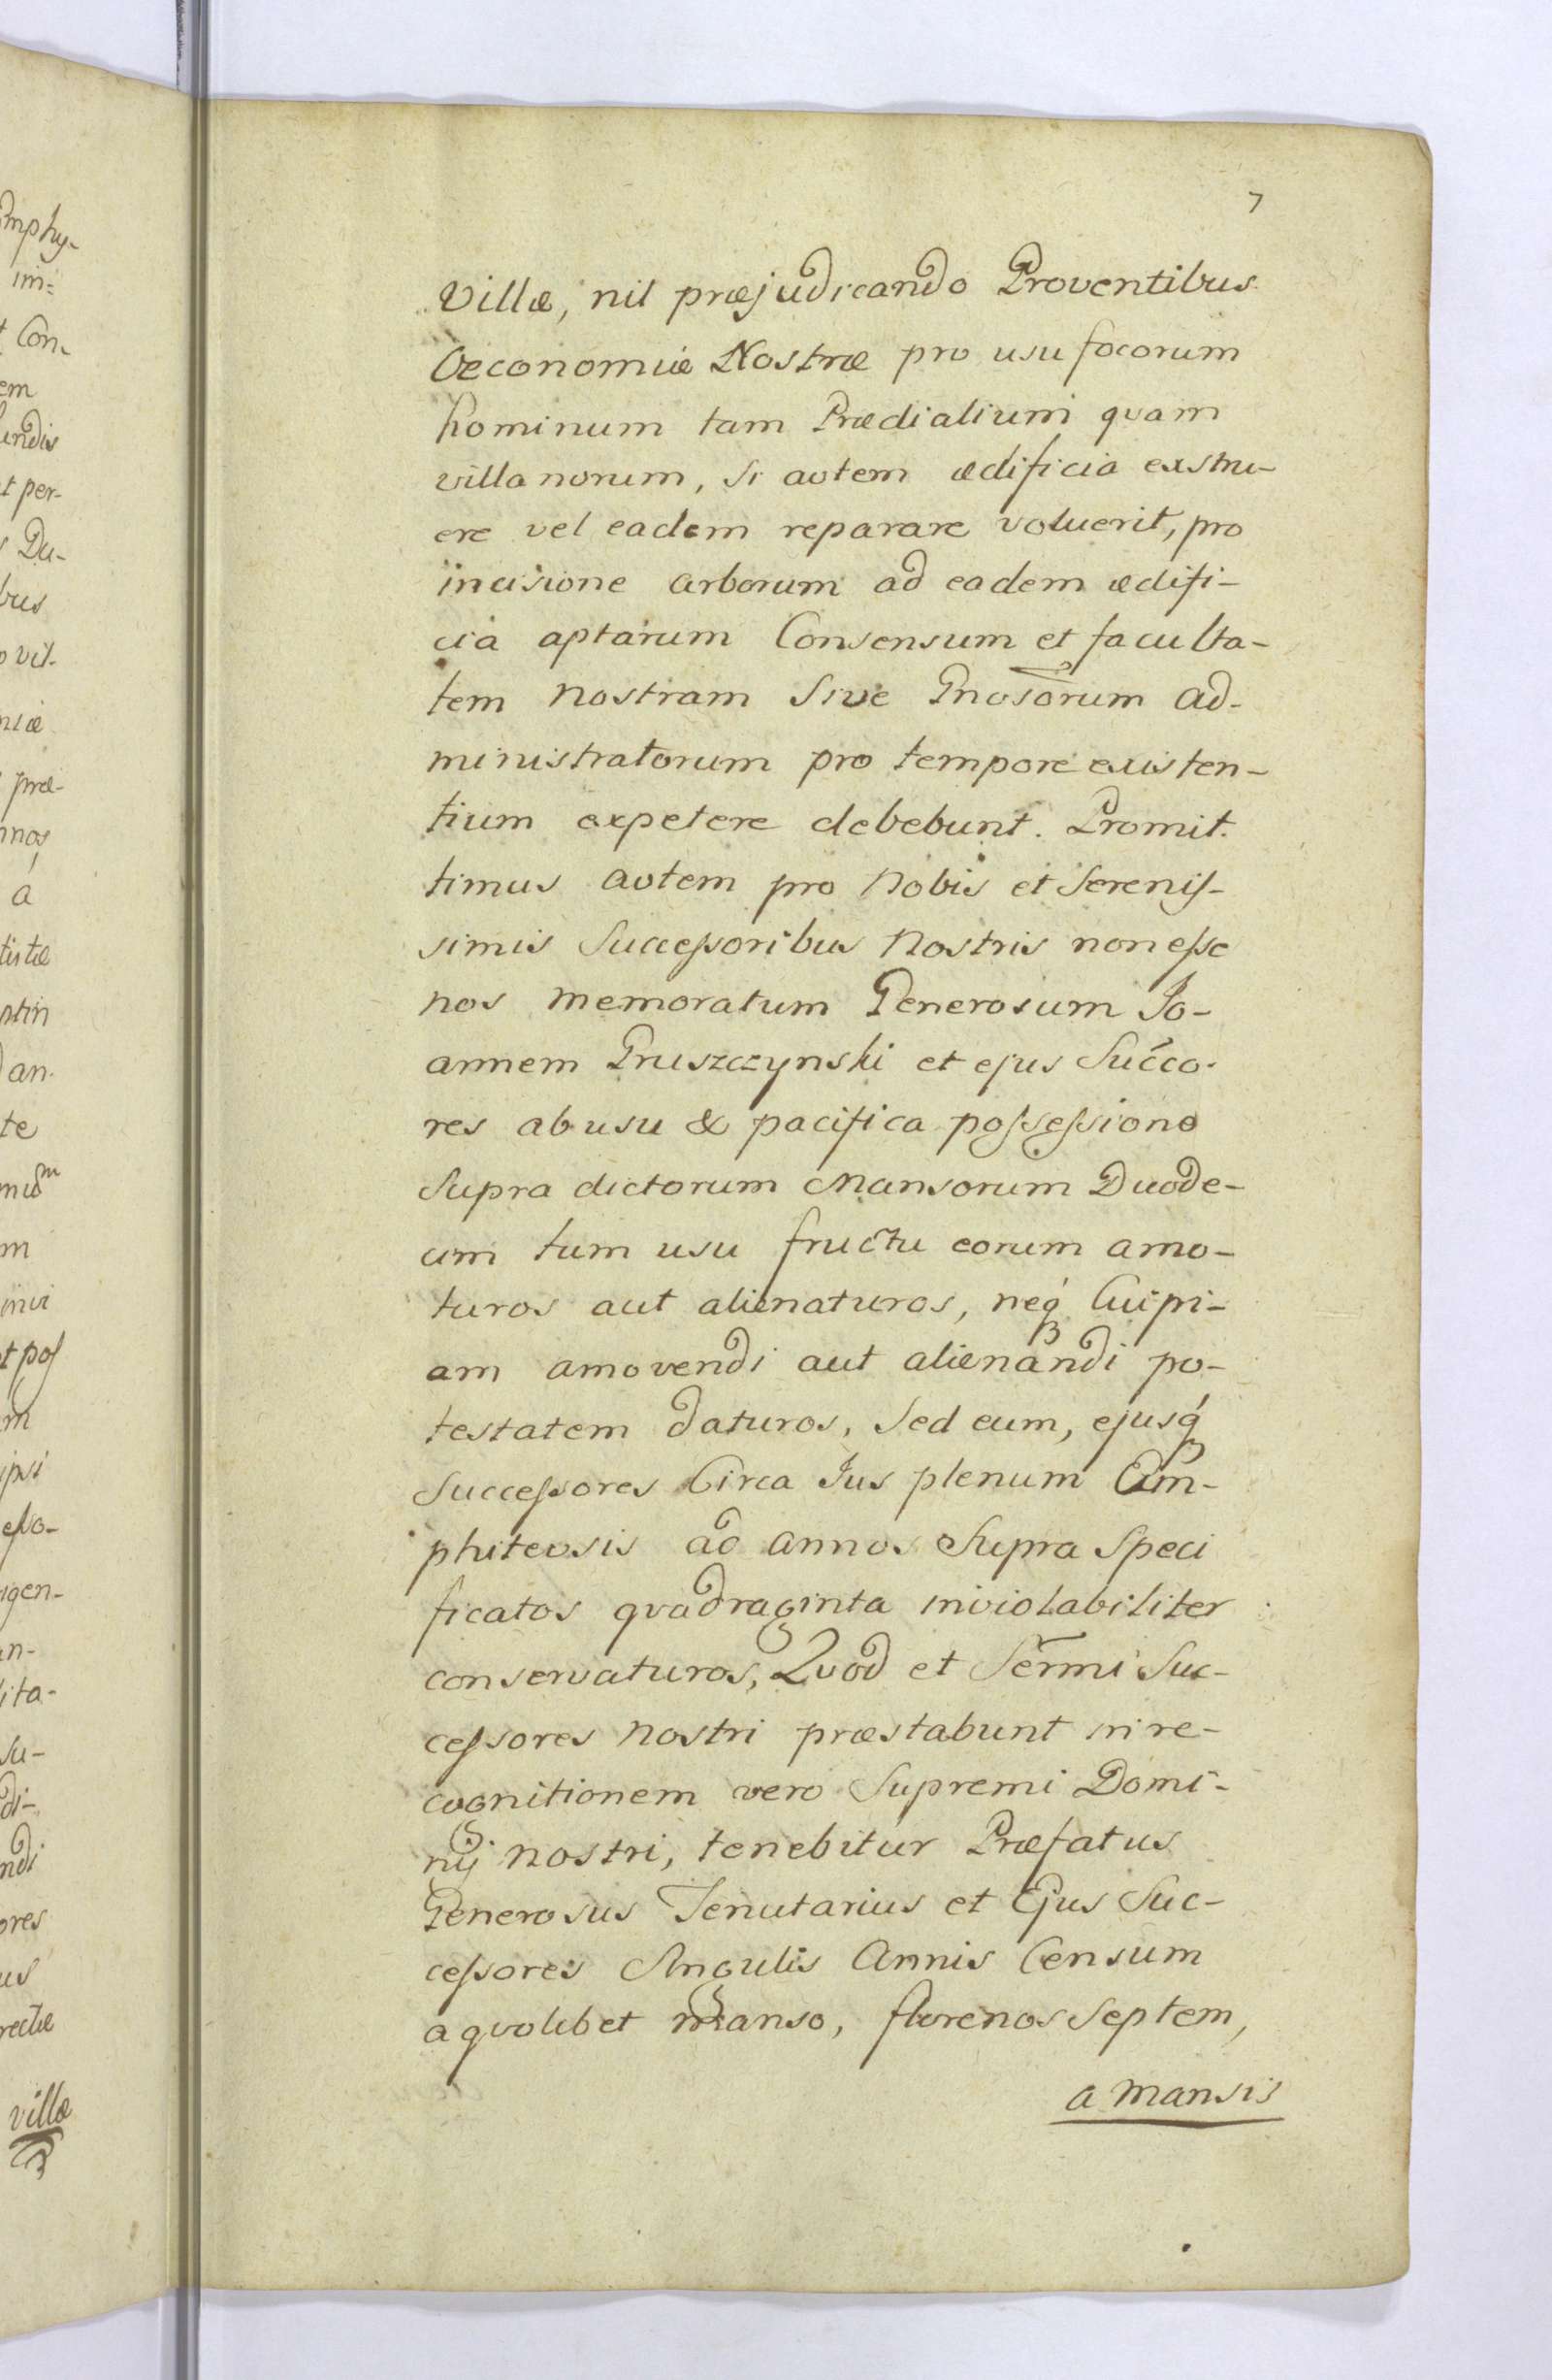 7
Villæ, nil præjudicando Proventibus
Oeconomiæ Nostræ pro usu focorum
hominum tam Prædialium quam
villanorum, Si avtem ædificia exstru-
ere vel eadem reparare voluerit, pro
incisione arborum ad eadem ædifi-
cia aptarum Consensum et faculta-
tem nostram Sive Gnosorum ad-
ministratorum pro tempore existen-
tium expetere debebunt. Promit.
timus avtem pro Nobis et Sereniſ-
simis Succeſsoribus Nostris non eſse
nos memoratum Generosum Jo-
annem Gruszczynski et ejus Succo-
res ab usu & pacifica poſseſsione
Supra dictorum Mansorum Duode-
cim tum usu fructu eorum amo-
turos aut alienaturos, neq́ Cuipi-
am amovendi aut alienandi po-
testatem daturos, Sed eum, ejusq́
Succeſsores Circa Jus plenum Em-
phiteosis ad annos Supra Speci
ficatos quadraginta inviolabiliter
conservaturos, Quod et Sermi Suc-
ceſsores nostri præstabunt in re-
cognitionem vero Supremi Domi-
nij nostri, tenebitur Præfatus
Generosus Tenutarius et Ejus Suc-
ceſsores Singulis Annis Censum
a quolibet manso, florenos Septem,
a Mansis